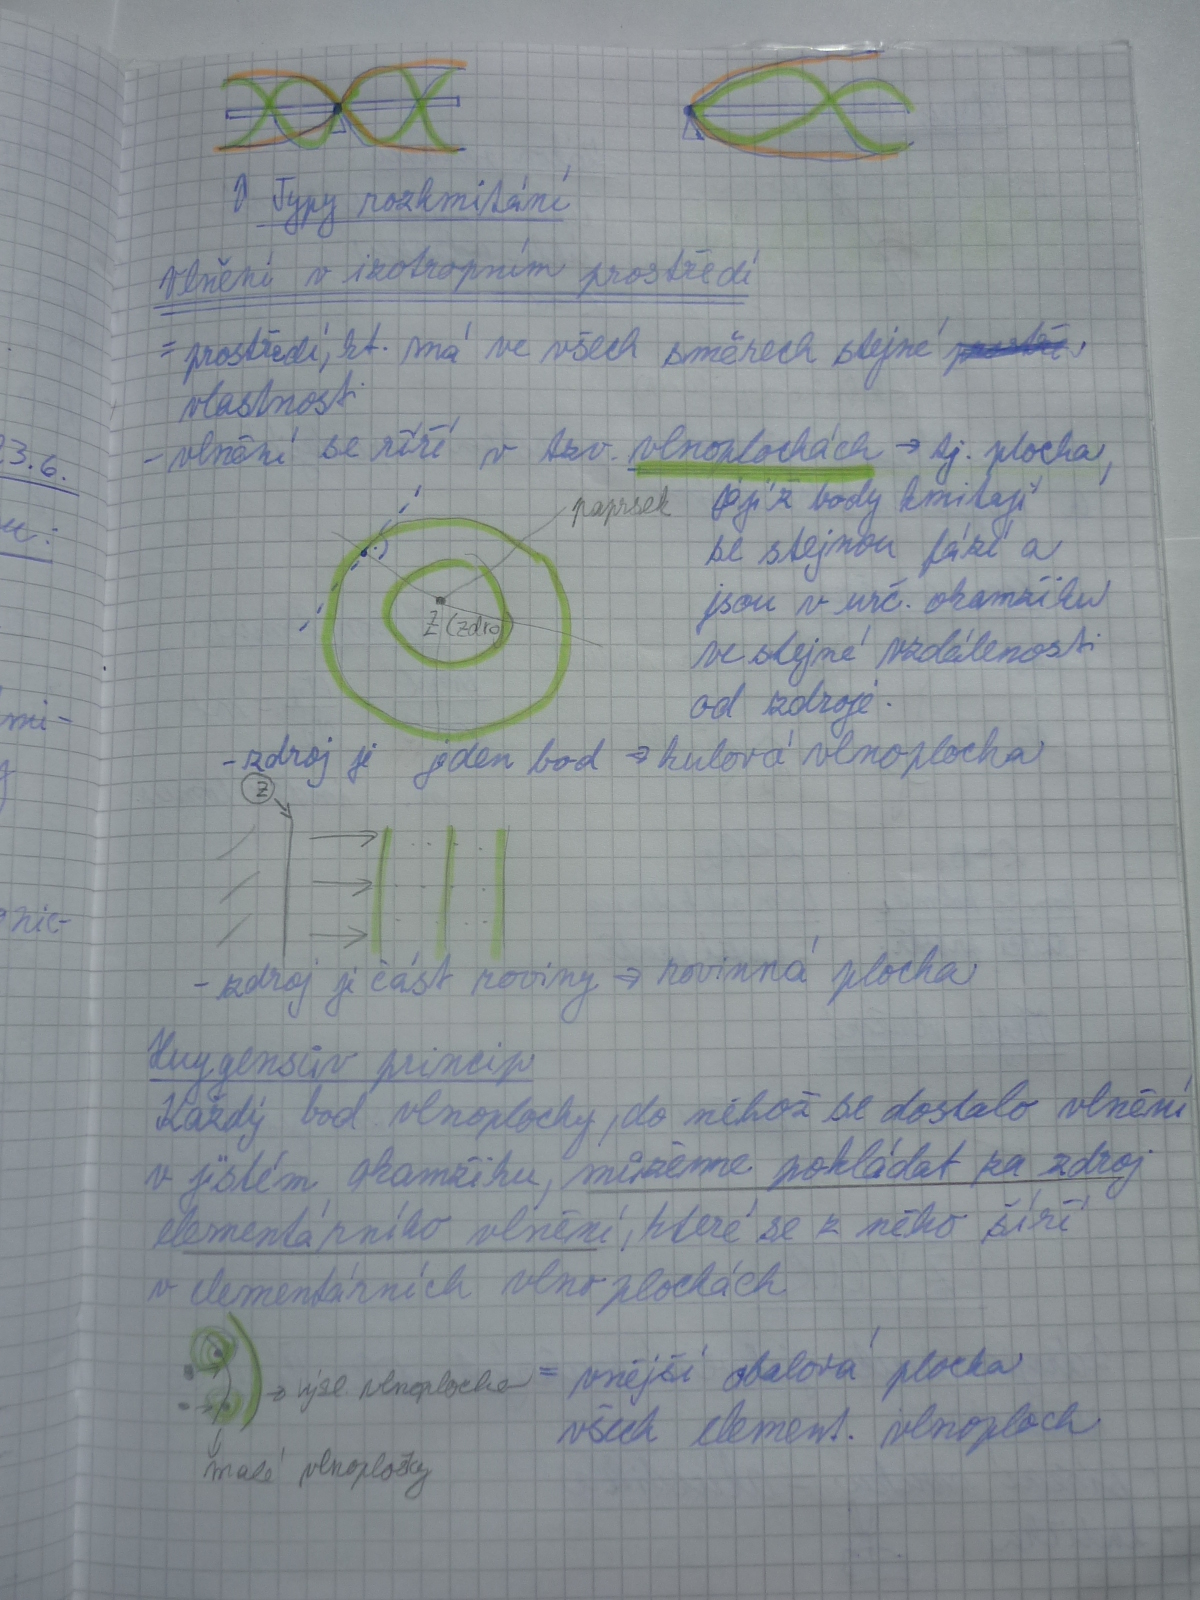 23.6.
↑ Typy rozkmitání
Vlnění v izotropním prostředí
= prostředí, kt. má ve všech směrech stejné
vlastnosti
- vlnění se šíří v tzv. vlnoplochách → tj. plocha,
paprsek
jejíž body kmitají
se stejnou fází a
jsou v urč. okamžiku
Z (zdroj)
ve stejné vzdálenosti
od zdroje.
- zdroj je jeden bod → kulová vlnoplocha
Z
- zdroj je část roviny → rovinná plocha
Huygensův princip
Každý bod vlnoplochy, do něhož se dostalo vlnění
v jistém okamžiku, můžeme pokládat za zdroj
elementárního vlnění, které se z něho šíří
v elementárních vlnoplochách
→ výsl. vlnoplocha = vnější obalová plocha
všech element. vlnoploch
malé vlnoplošky